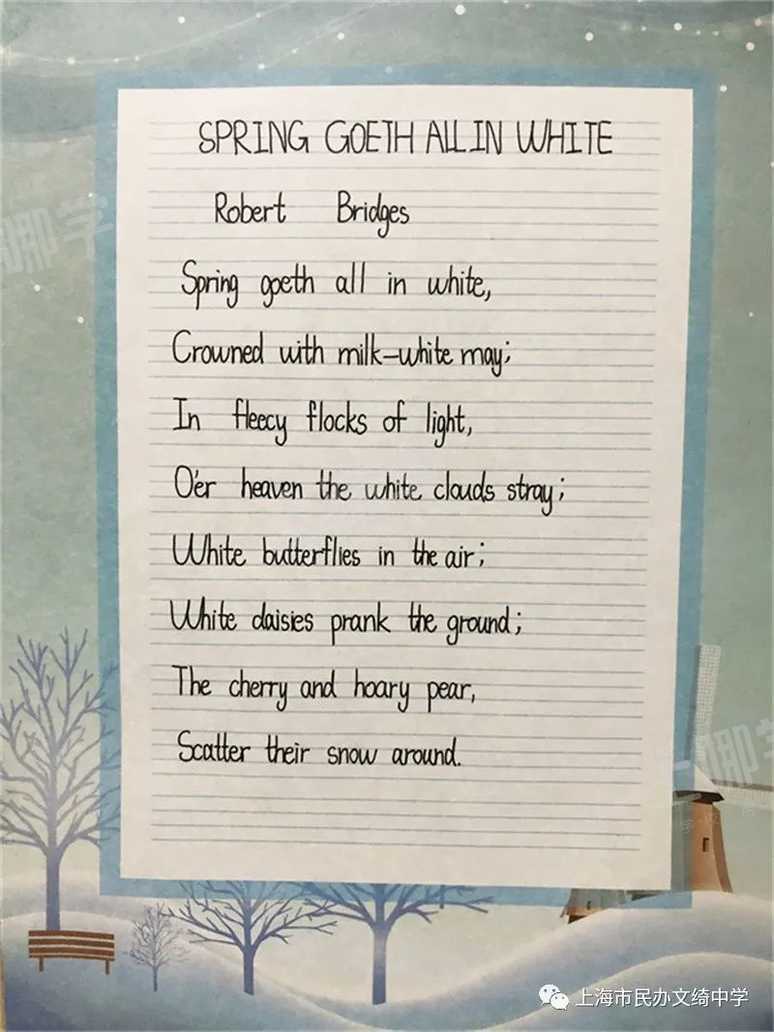 SPRING GOETH ALL IN WHITE
Robert Bridges
Spring goeth all in white,
Crowned with milk-white may;
In fleecy flocks of light,
O'er heaven the white clouds stray;
White butterflies in the air;
White daisies prank the ground;
The cherry and hoary pear,
Scatter their snow around.
上海市民办文绮中学